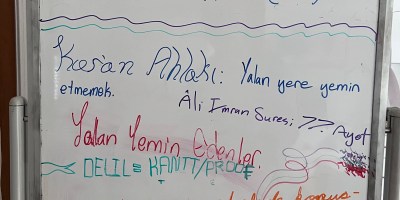 Kur'an Ahlakı: Yalan yere yemin
etmemek.
Âli İmran Suresi 77. Ayet
Yalan Yemin Edenler.
DELİL = KANIT/PROOF